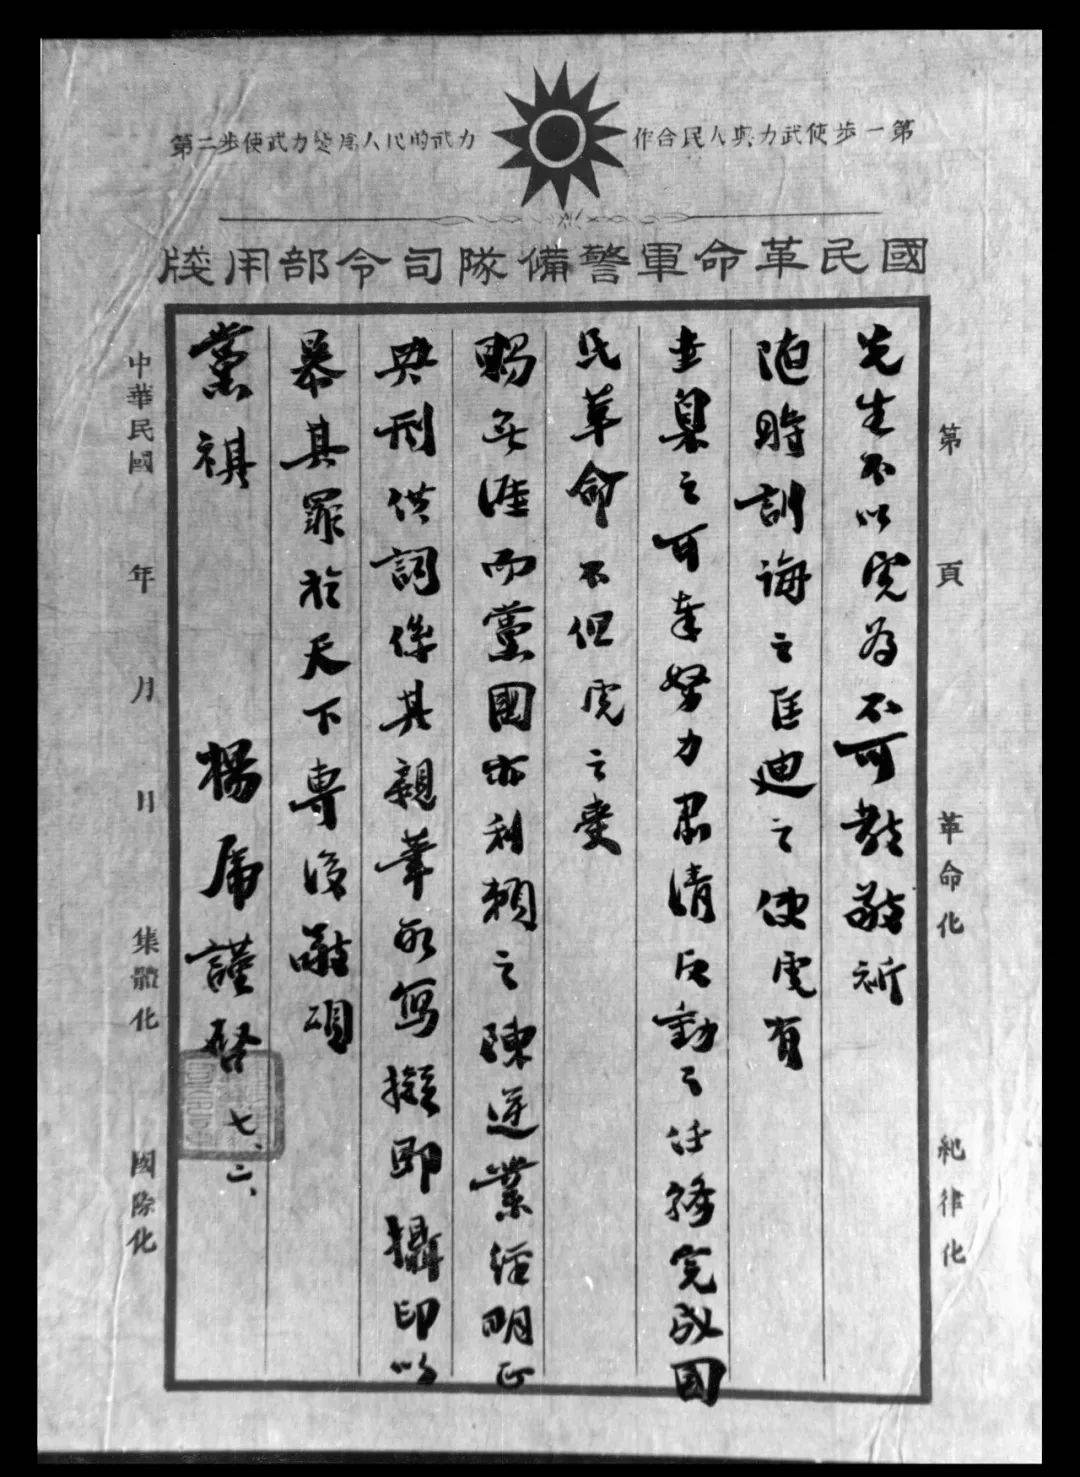 第一步使武力與人民合作
第二步使武力變為人民的武力
國民革命軍警備隊司令部用牋
第 頁 革命化 紀律化
先生不以虎為不可教敬祈
隨時訓誨之匡迪之使虎有
圭臬之可奉努力肅清反動之任務完成國
民革命不但虎之幸
賜無涯而黨國亦利賴之陳逆業經明正
典刑供詞係其親筆所寫擬即攝印以
暴其罪於天下專復敬頌
黨祺 楊虎謹啓 七、二、
中華民國 年 月 日 集體化 國際化